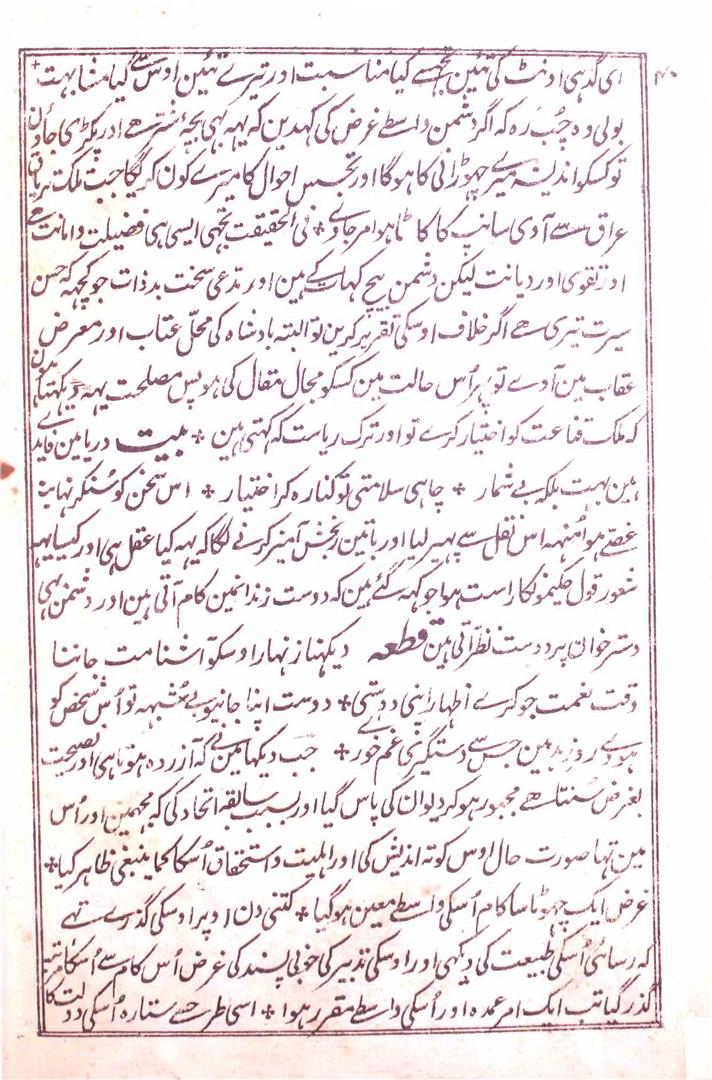 ۴۰
ای گدہی اونٹ کی تئین تجھسے کیا مناسبت اور تیرے تئین اوس سے کیا مشابہت
بولی وہ چپ رہ کہ اگر دشمن واسطے غرض کی کہدین کہ یہہ بہی بچہ شتر ہے اور پکڑی جاؤن
تو کسکو اندیشہ میرے چہوڑانی کا ہوگا اور تجسس احوال کا میرے کون کریگا جب تلک تریاق
عراق سے آوی سانپ کا کاٹا ہوا مر جاوے * فی الحقیقت تجہی ایسی ہی فضیلت و امانت ہے
اور تقوی اور دیانت لیکن دشمن بیچ گہات کے ہین اور مدعی سخت بدذات جو کچہہ کہ حسن
سیرت تیری ہے اگر خلاف اوسکی تقریر کرین تو البتہ بادشاہ کی محل عتاب اور معرض
عقاب مین آوے تو پہر اُس حالت مین کسکو مجال مقال کی ہو پس مصلحت یہہ دیکہتا ہون
کہ ملک قناعت کو اختیار کرے تو اور ترک ریاست کہ کہتی ہین * بیت دریا مین فایدے
ہین بہت بلکہ بے شمار * چاہی سلامتی تو کنارہ کر اختیار * اس سخن کو سُنکر نہایت
غصے ہوا مُنہہ اس نقل سے پہیر لیا اور باتین رنجش آمیز کرنے لگا کہ یہہ کیا عقل ہی اور کیسا یہہ
شعور قول حکیمونکا راست ہوا جو کہہ گئے ہین کہ دوست زندانمین کام آتی ہین اور دشمن بہی
دسترخوان پر دوست نظر آتی ہین قطعہ دیکہنا زنہار اوسکو آشنا مت جاننا
وقت نعمت جو کرے اظہار اپنی دوستی * دوست اپنا جانیو بے شبہہ تو اُس شخص کو
ہووے روز بد مین جس سے دستگیری غم خور * جب دیکہا مین نے کہ آزردہ ہوتا ہی اور نصیحت
بغرض سُنتا ہے مجبور ہو کر دیوان کی پاس گیا اور بسبب سابقہ اتحاد کی کہ مجہمین اور اُس
مین تہا صورت حال اوس کو تہ اندیش کی اور اہلیت و استحقاق اُسکا کما ینبغی ظاہر کیا *
غرض ایک چہوٹا سا کام اُسکی واسطے معین ہوگیا * کتنی دن اوپر اوسکی گذرے تہے
کہ رسائی اُسکی طبیعت کی دیکہی اور اوسکی تدبیر کی خوبی پسند کی غرض اُس کام سے اُسکا مرتبہ
گذر گیا تب ایک امر عمدہ اور اُسکی واسطے مقرر ہوا * اسی طرح سے ستارہ اُسکی دولت کا